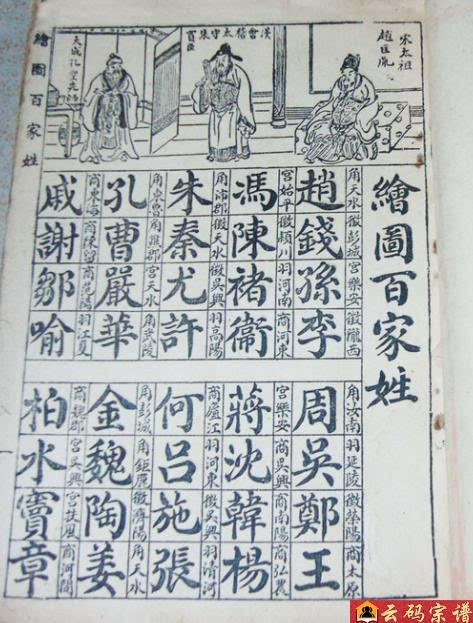 繪圖百家姓
宋太祖
趙匡胤
漢會稽太守朱買臣
繪圖百家姓
角天水 徵彭城 宮樂安 徵隴西
趙錢孫李
宮始平 徵潁川 羽河南 商河東
馮陳褚衞
角沛郡 徵天水 徵吳興 羽高陽
朱秦尤許
角東魯 角譙郡 宮天水 角武陵
孔曹嚴華
商東海 商陳留 羽江夏
戚謝鄒喻
角汝南 羽延陵 徵滎陽 商太原
周吳鄭王
宮樂安 商吳興 商南陽 商弘農
蔣沈韓楊
商廬江 羽河東 徵吳興 羽清河
何呂施張
角彭城 角鉅鹿 徵濟陽 角天水
金魏陶姜
商魏郡 宮吳興 宮扶風 商河間
柏水竇章
云码宗谱